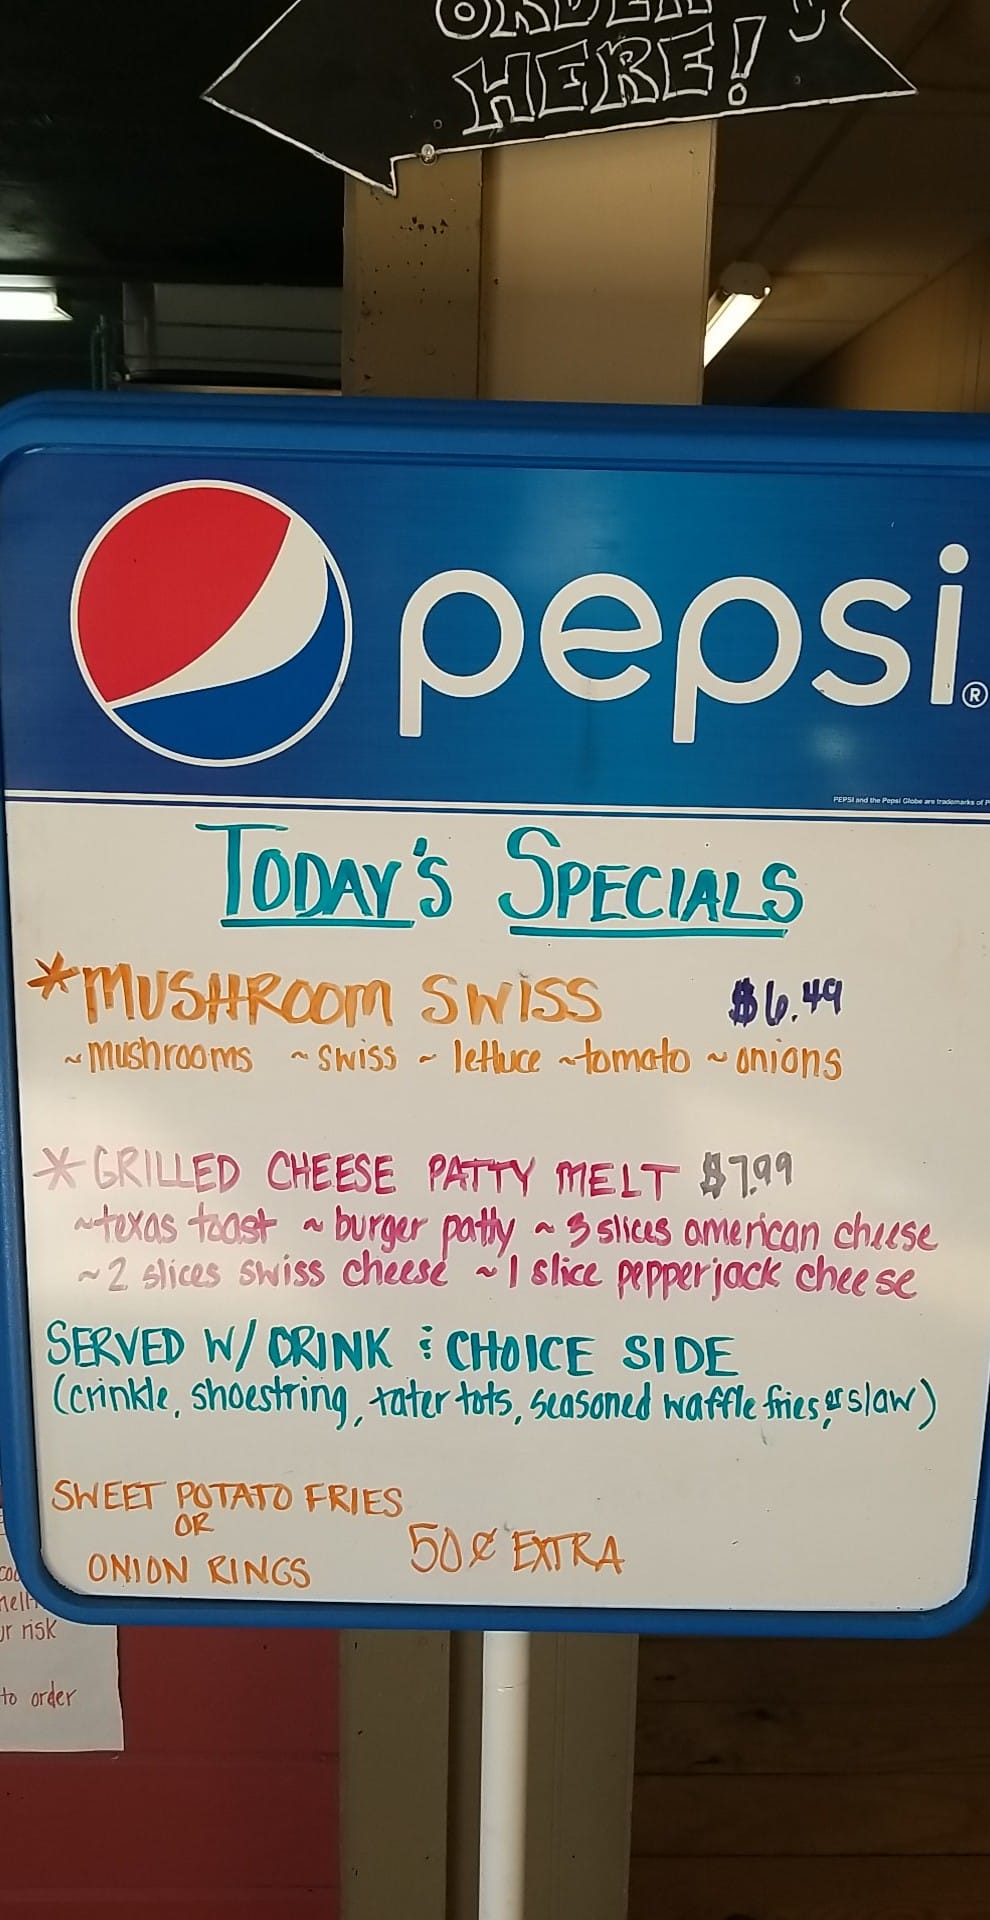 ORDER
HERE!
pepsi®
PEPSI and the Pepsi Globe are trademarks of
TODAY'S SPECIALS
*MUSHROOM SWISS $6.49
~mushrooms ~swiss ~lettuce ~tomato ~onions
*GRILLED CHEESE PATTY MELT $7.99
~texas toast ~burger patty ~3 slices american cheese
~2 slices swiss cheese ~1 slice pepperjack cheese
SERVED W/ DRINK & CHOICE SIDE
(crinkle, shoestring, tater tots, seasoned waffle fries, or slaw)
SWEET POTATO FRIES
OR
ONION RINGS
50¢ EXTRA
risk
to order